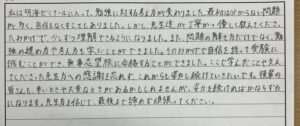 私は明海ゼミナールに入って、勉強に対する考え方が変わりました。最初は分からない問題
が多く、自信をなくすこともありました。しかし、先生達が丁寧に優しく教えてくださっ
たおかげで、少しずつ理解できるようになりました。また、問題の解き方だけでなく、勉
強の進め方や考え方も学ぶことができました。そのおかげで自信を持って受験に
挑むことができ、無事志望校に合格することができました。ここで学んだことや支え
てくださった先生方への感謝を忘れず、これからも努力し続けていきたいです。後輩の
皆さんも、辛いときや大変なときがあるかもしれませんが、努力を続ければかならず力
になります。先生方を信じて、最後まで諦めず頑張ってください。